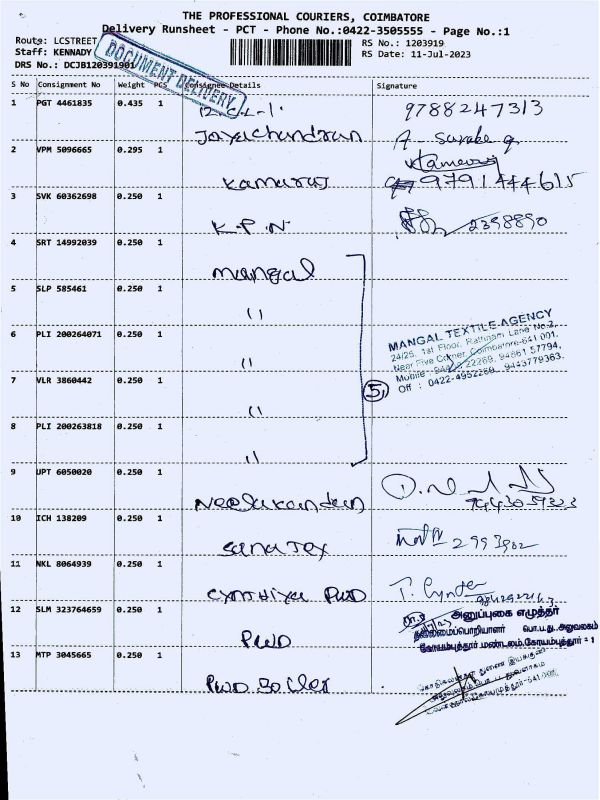 THE PROFESSIONAL COURIERS, COIMBATORE
Delivery Runsheet - PCT - Phone No.:0422-3505555 - Page No.:1
Route: LCSTREET
RS No.: 1203919
Staff: KENNADY
RS Date: 11-Jul-2023
DRS No.: DCJB120391901
DOCUMENT DELIVERY
S No Consignment No Weight PCS Consignee Details Signature
1 PGT 4461835 0.435 1 9788247313
Jayachandran
2 VPM 5096665 0.295 1
Kamaraj 9791444615
3 SVK 60362698 0.250 1
K.P.N 2398890
4 SRT 14992039 0.250 1
Mangal
5 SLP 585461 0.250 1
"
MANGAL TEXTILE AGENCY
24/25, 1st Floor, Rathinam Lane No.2,
Near Five Corner, Coimbatore-641 001.
Off : 0422-4952269
6 PLI 200264071 0.250 1
"
7 VLR 3860442 0.250 1
5
"
8 PLI 200263818 0.250 1
"
9 UPT 6050020 0.250 1
Neelakandan
10 ICH 138209 0.250 1
Sanatex 2993902
11 NKL 8064939 0.250 1
CYNTHIYA PWD
12 SLM 323764659 0.250 1
அனுப்புகை எழுத்தர்
தலைமைப்பொறியாளர் பொ.ப.து.அலுவலகம்
கோயம்புத்தூர் மண்டலம்,கோயம்புத்தூர் = 1
PWD
13 MTP 3045665 0.250 1
PWD Boiler